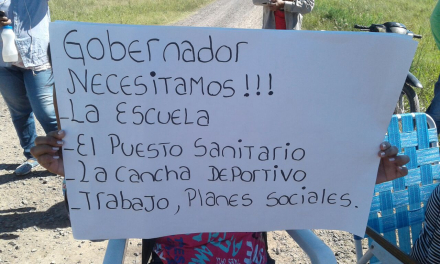 Gobernador
Necesitamos!!!
La Escuela
- El Puesto Sanitario
- La Cancha Deportivo
- Trabajo, Planes Sociales.